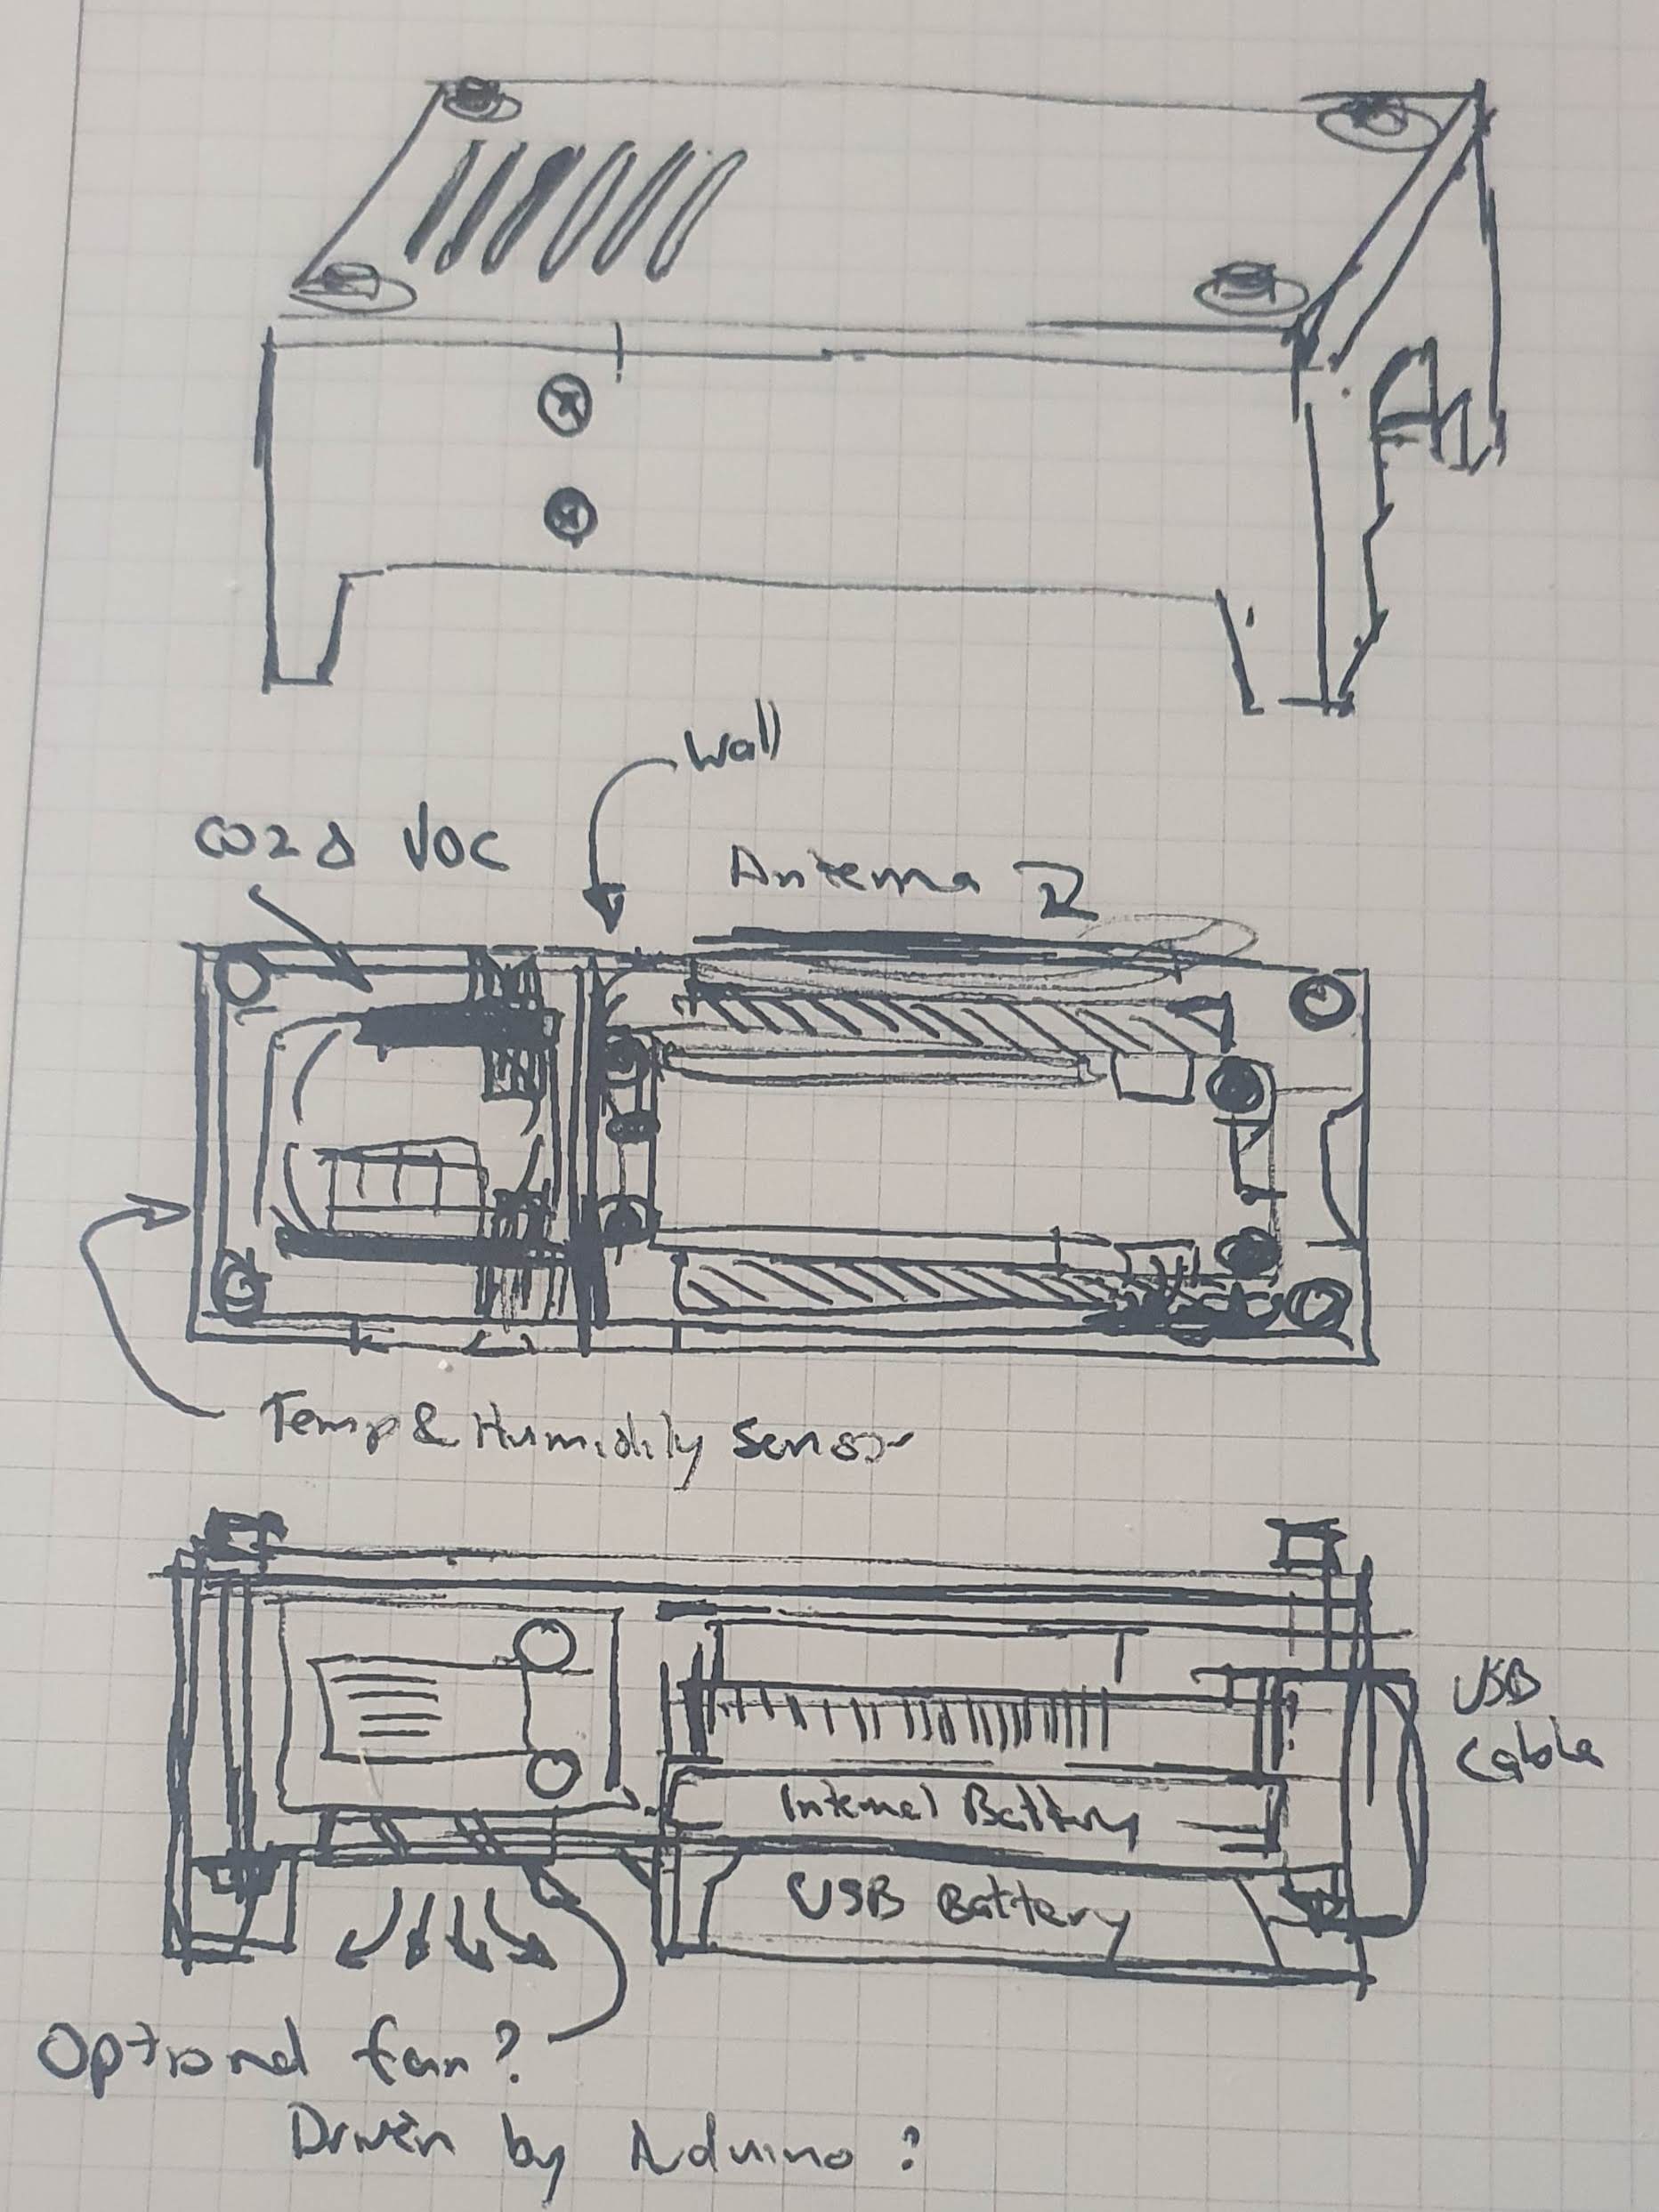 Wall
CO2 & VOC
Antenna
Temp & Humidity Sensor
USB
Cable
Internal Battery
USB Battery
Optional fan?
Driven by Arduino?